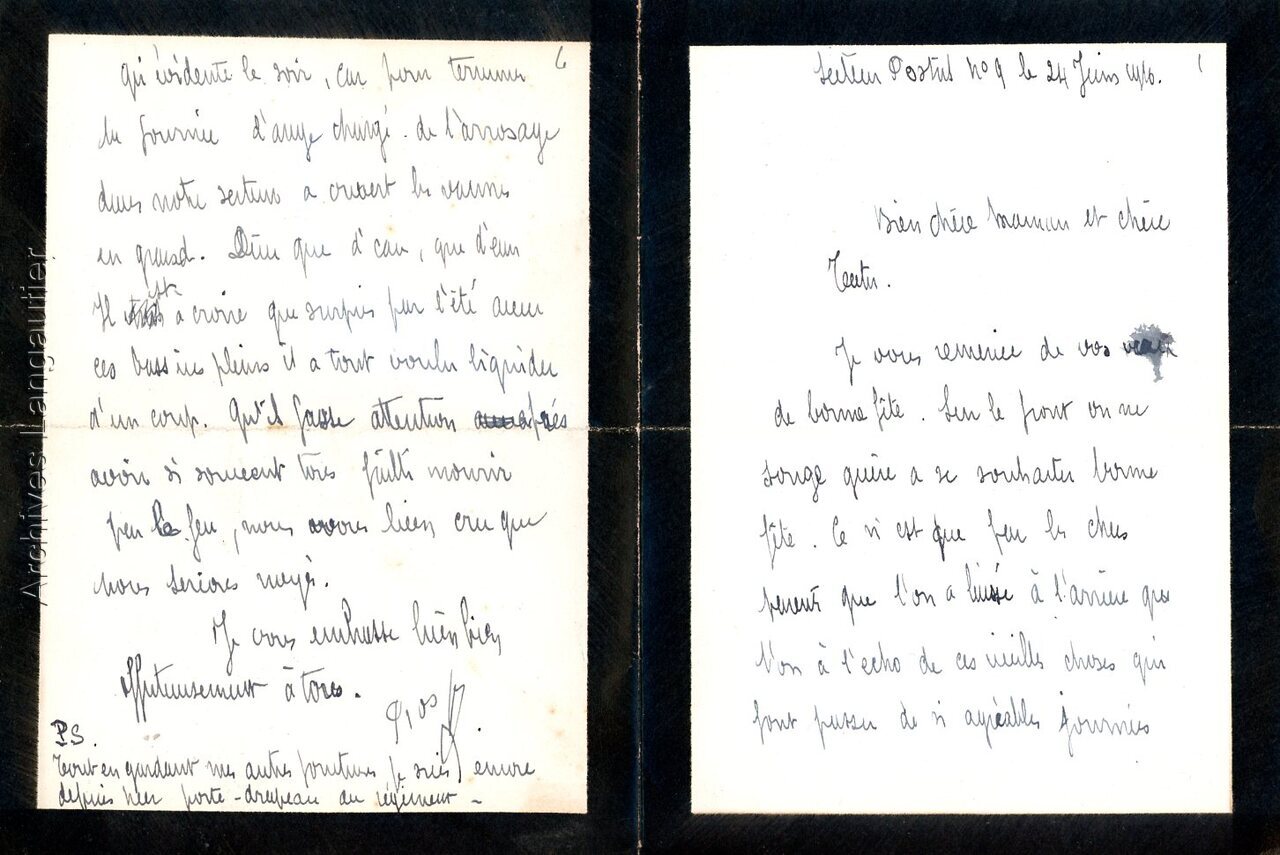 6
qui évidente le soir, car pour terminer
la journée l'ange chargé de l'arrosage
dans notre secteur a ouvert les vannes
en grand. Dieu que d'eau, que d'eau
Il est à croire que surpris par l'été avec
ces bassins pleins il a tout voulu liquider
d'un coup. Qu'il fasse attention après
avoir si souvent tous failli mourir
par le feu, nous avons bien cru que
nous serions noyés.
Je vous embrasse bien bien
affectueusement à tous.
P.S.
Tout en gardant mes autres fonctions je suis encore
depuis hier porte-drapeau du régiment -
1
Secteur Postal No 9 le 24 Juin 1916.
Bien chère Maman et chère
Tante.
Je vous remercie de vos vœux
de bonne fête. Sur le front on ne
songe guère a se souhaiter bonne
fête. Ce n'est que par les chers
parents que l'on a laissé à l'arrière que
l'on à l'echo de ces vieilles choses qui
font passer de si agréables journées
Archives Langautier